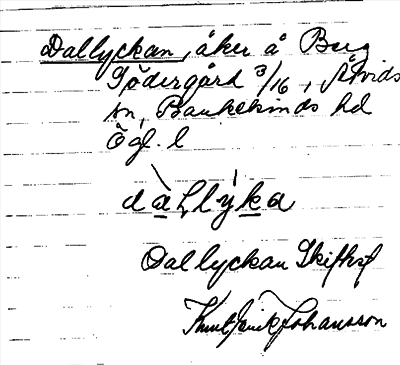 Dallyckan, åker å Berg
Södergård 3/16, Åtvids
sn, Bankekinds hd
Ög. l
dàḷlýka
Dallyckan Skifteskf
Knut Erik Johansson